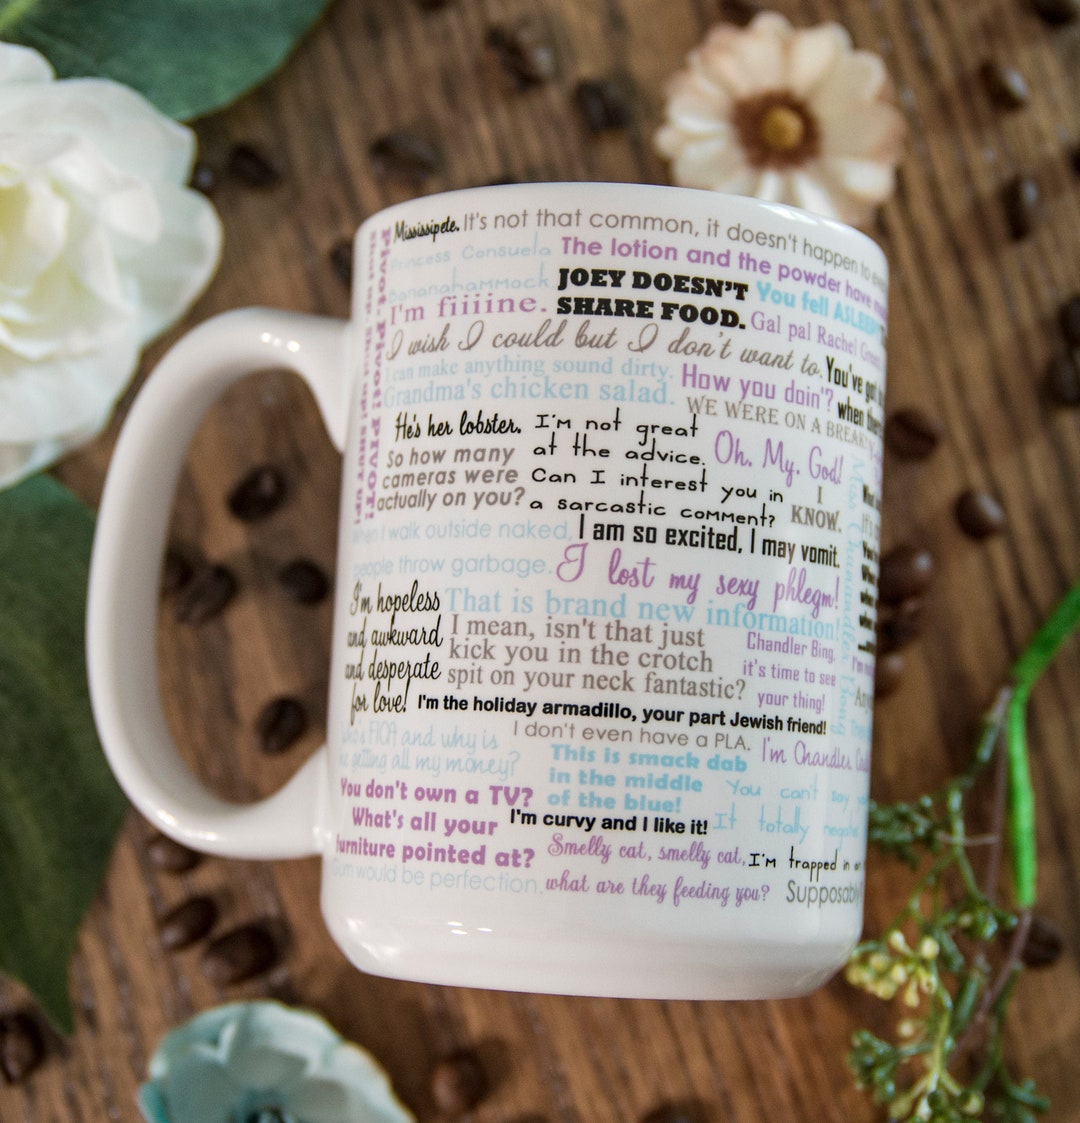 Mississipete. It's not that common, it doesn't happen to
Princess Consuela
Bananahammock
The lotion and the powder have
JOEY DOESN'T
SHARE FOOD.
You fell ASLEEP
I'm fiiiine.
Gal pal Rachel Green
I wish I could but I don't want to.
You've got
when the
I can make anything sound dirty.
Grandma's chicken salad.
How you doin'?
WE WERE ON A BREAK!
Pivot. Pivot! PIVOT!
Shut up. Shut up! Shut up!
He's her lobster.
I'm not great
at the advice.
Can I interest you in
a sarcastic comment?
Oh. My. God!
I
KNOW.
So how many
cameras were
actually on you?
When I walk outside naked,
people throw garbage.
I am so excited, I may vomit.
I lost my sexy phlegm!
Miss Chanandler Bong
I'm hopeless
and awkward
and desperate
for love!
That is brand new information!
I mean, isn't that just
kick you in the crotch
spit on your neck fantastic?
Chandler Bing,
it's time to see
your thing!
I'm the holiday armadillo, your part Jewish friend!
Who's FICA and why is
he getting all my money?
I don't even have a PLA.
I'm Chandler.
This is smack dab
in the middle
of the blue!
You can't say
It totally
You don't own a TV?
What's all your
furniture pointed at?
I'm curvy and I like it!
Smelly cat, smelly cat,
what are they feeding you?
I'm trapped in
Gum would be perfection.
Supposably